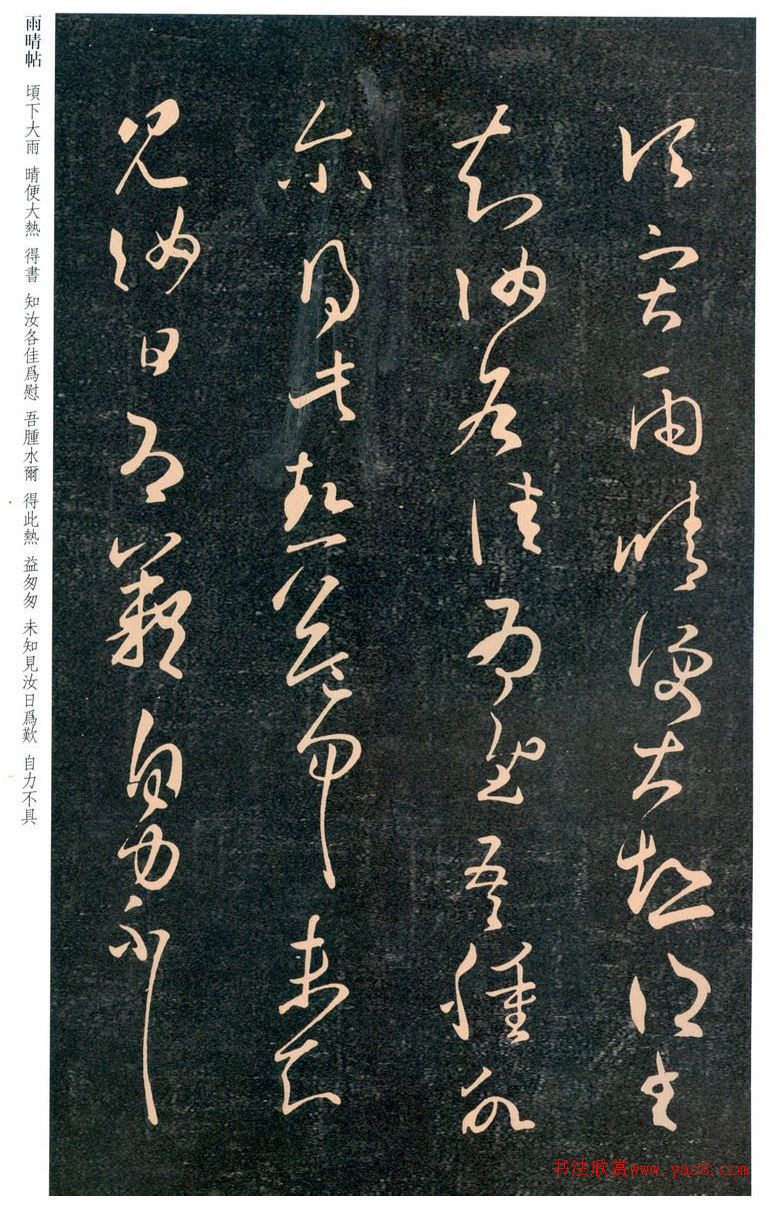 雨晴帖 頃下大雨 晴便大熱 得書 知汝各佳爲慰 吾腫水爾 得此熱 益匆匆 未知見汝日爲歎 自力不具
頃下大雨晴便大熱得書
知汝各佳爲慰吾腫水
爾得此熱益匆匆未知
見汝日爲歎自力不具
书法欣赏www.yac8.com